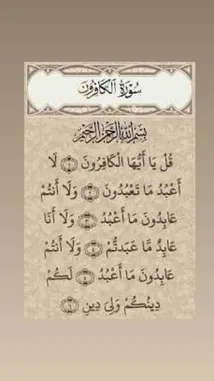 سُورَةُ الكَافِرُونَ
بِسْمِ اللَّهِ الرَّحْمَنِ الرَّحِيمِ
قُلْ يَا أَيُّهَا الْكَافِرُونَ ﴿١﴾ لَا
أَعْبُدُ مَا تَعْبُدُونَ ﴿٢﴾ وَلَا أَنتُمْ
عَابِدُونَ مَا أَعْبُدُ ﴿٣﴾ وَلَا أَنَا
عَابِدٌ مَّا عَبَدتُّمْ ﴿٤﴾ وَلَا أَنتُمْ
عَابِدُونَ مَا أَعْبُدُ ﴿٥﴾ لَكُمْ
دِينُكُمْ وَلِيَ دِينِ ﴿٦﴾